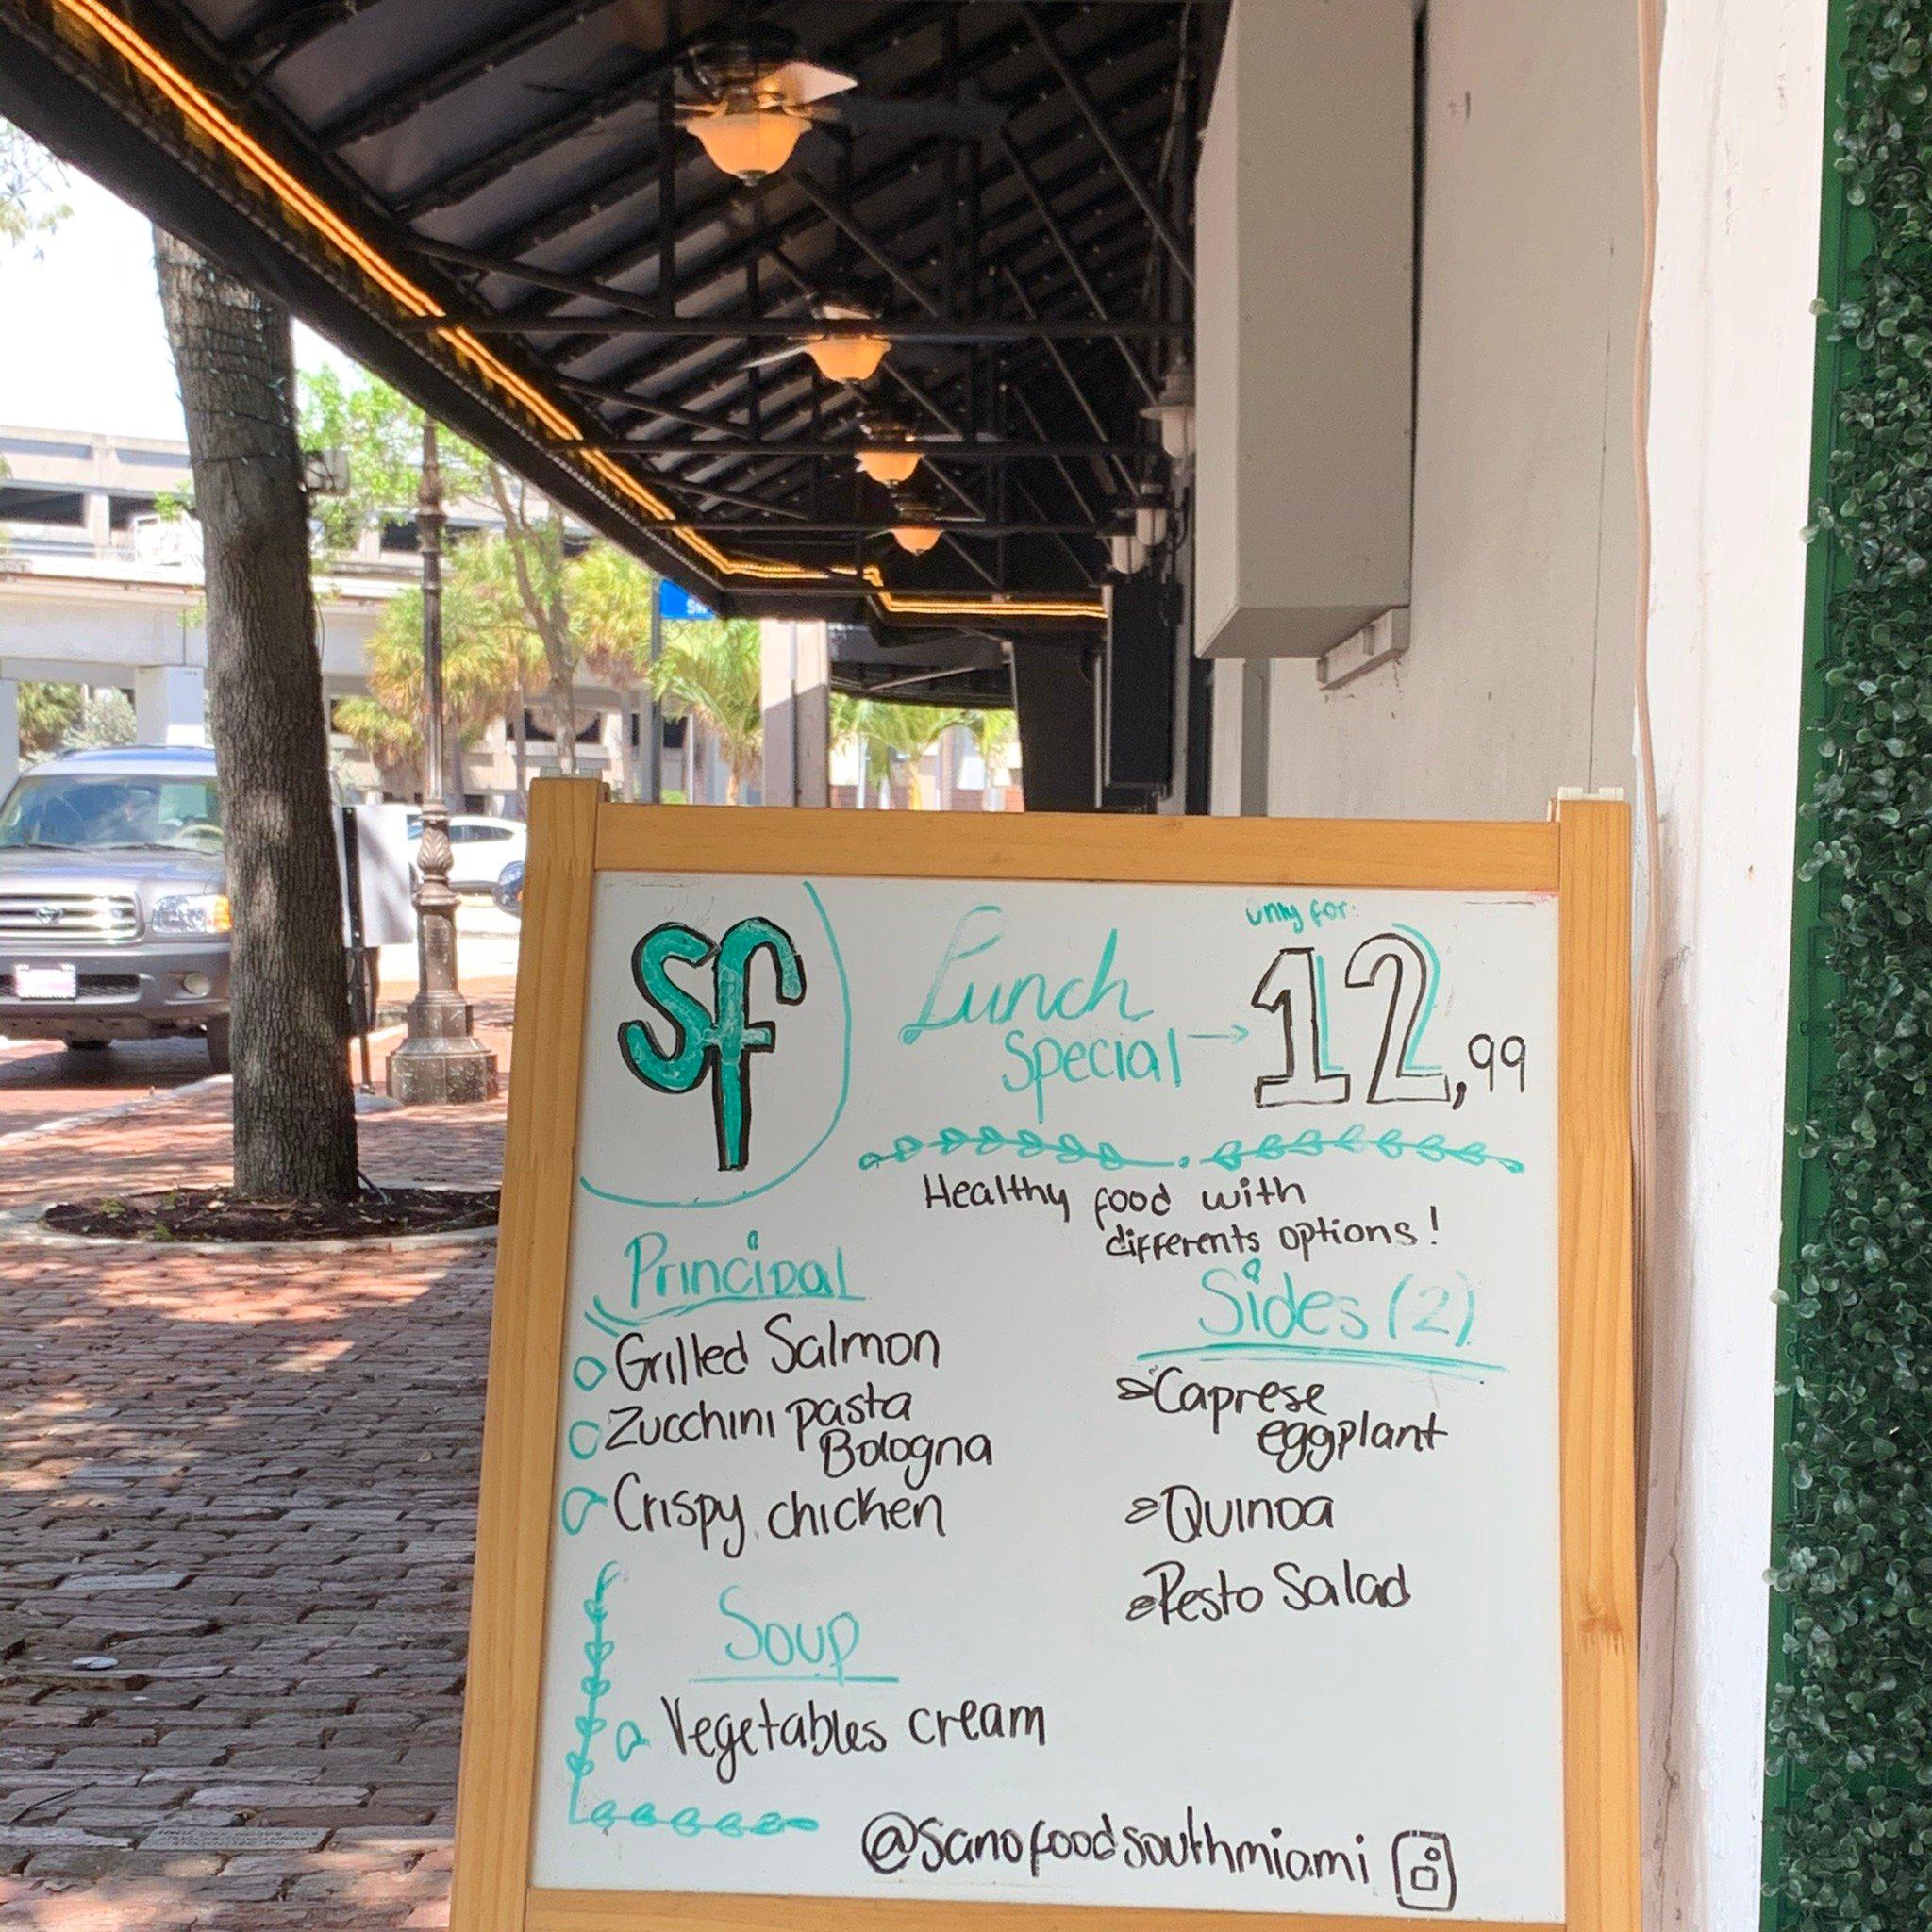 SW
sf
Lunch
Special →
only for:
12,99
Healthy food with
differents options!
Principal
Grilled Salmon
Zucchini pasta
Bologna
Crispy chicken
Sides (2)
Caprese
eggplant
Quinoa
Pesto Salad
Soup
Vegetables cream
@sanofoodsouthmiami